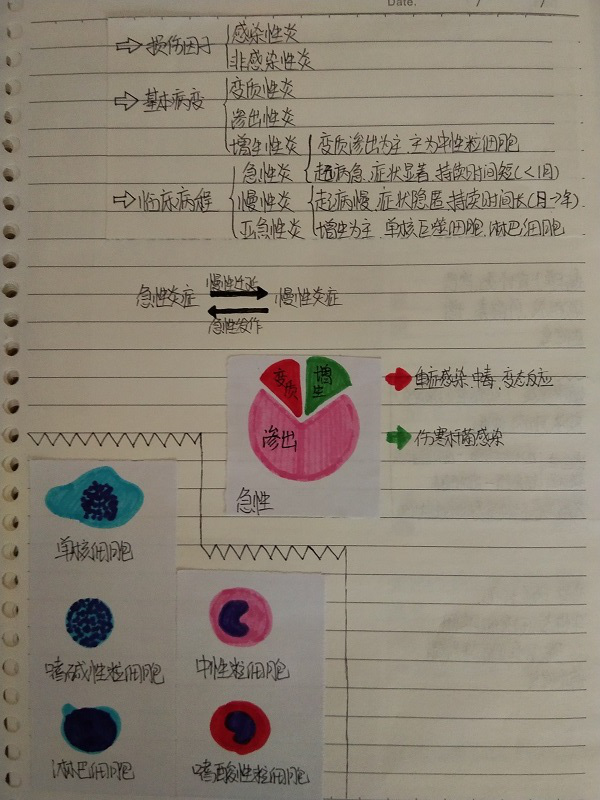 Date.
⇒损伤因子{感染性炎
非感染性炎
⇒基本病变{变质性炎
渗出性炎
增生性炎
变质渗出为主,主为中性粒细胞
急性炎{起病急、症状显著、持续时间短(<1月)
⇒临床病程{慢性炎{起病慢、症状隐匿、持续时间长(月→年)
亚急性炎 增生为主、单核巨噬细胞、淋巴细胞
急性炎症 慢性炎症
急性发作
变质 增生
重症感染、中毒、变态反应
渗出
伤寒杆菌感染
急性
单核细胞
嗜碱性粒细胞 中性粒细胞
淋巴细胞 嗜酸性粒细胞